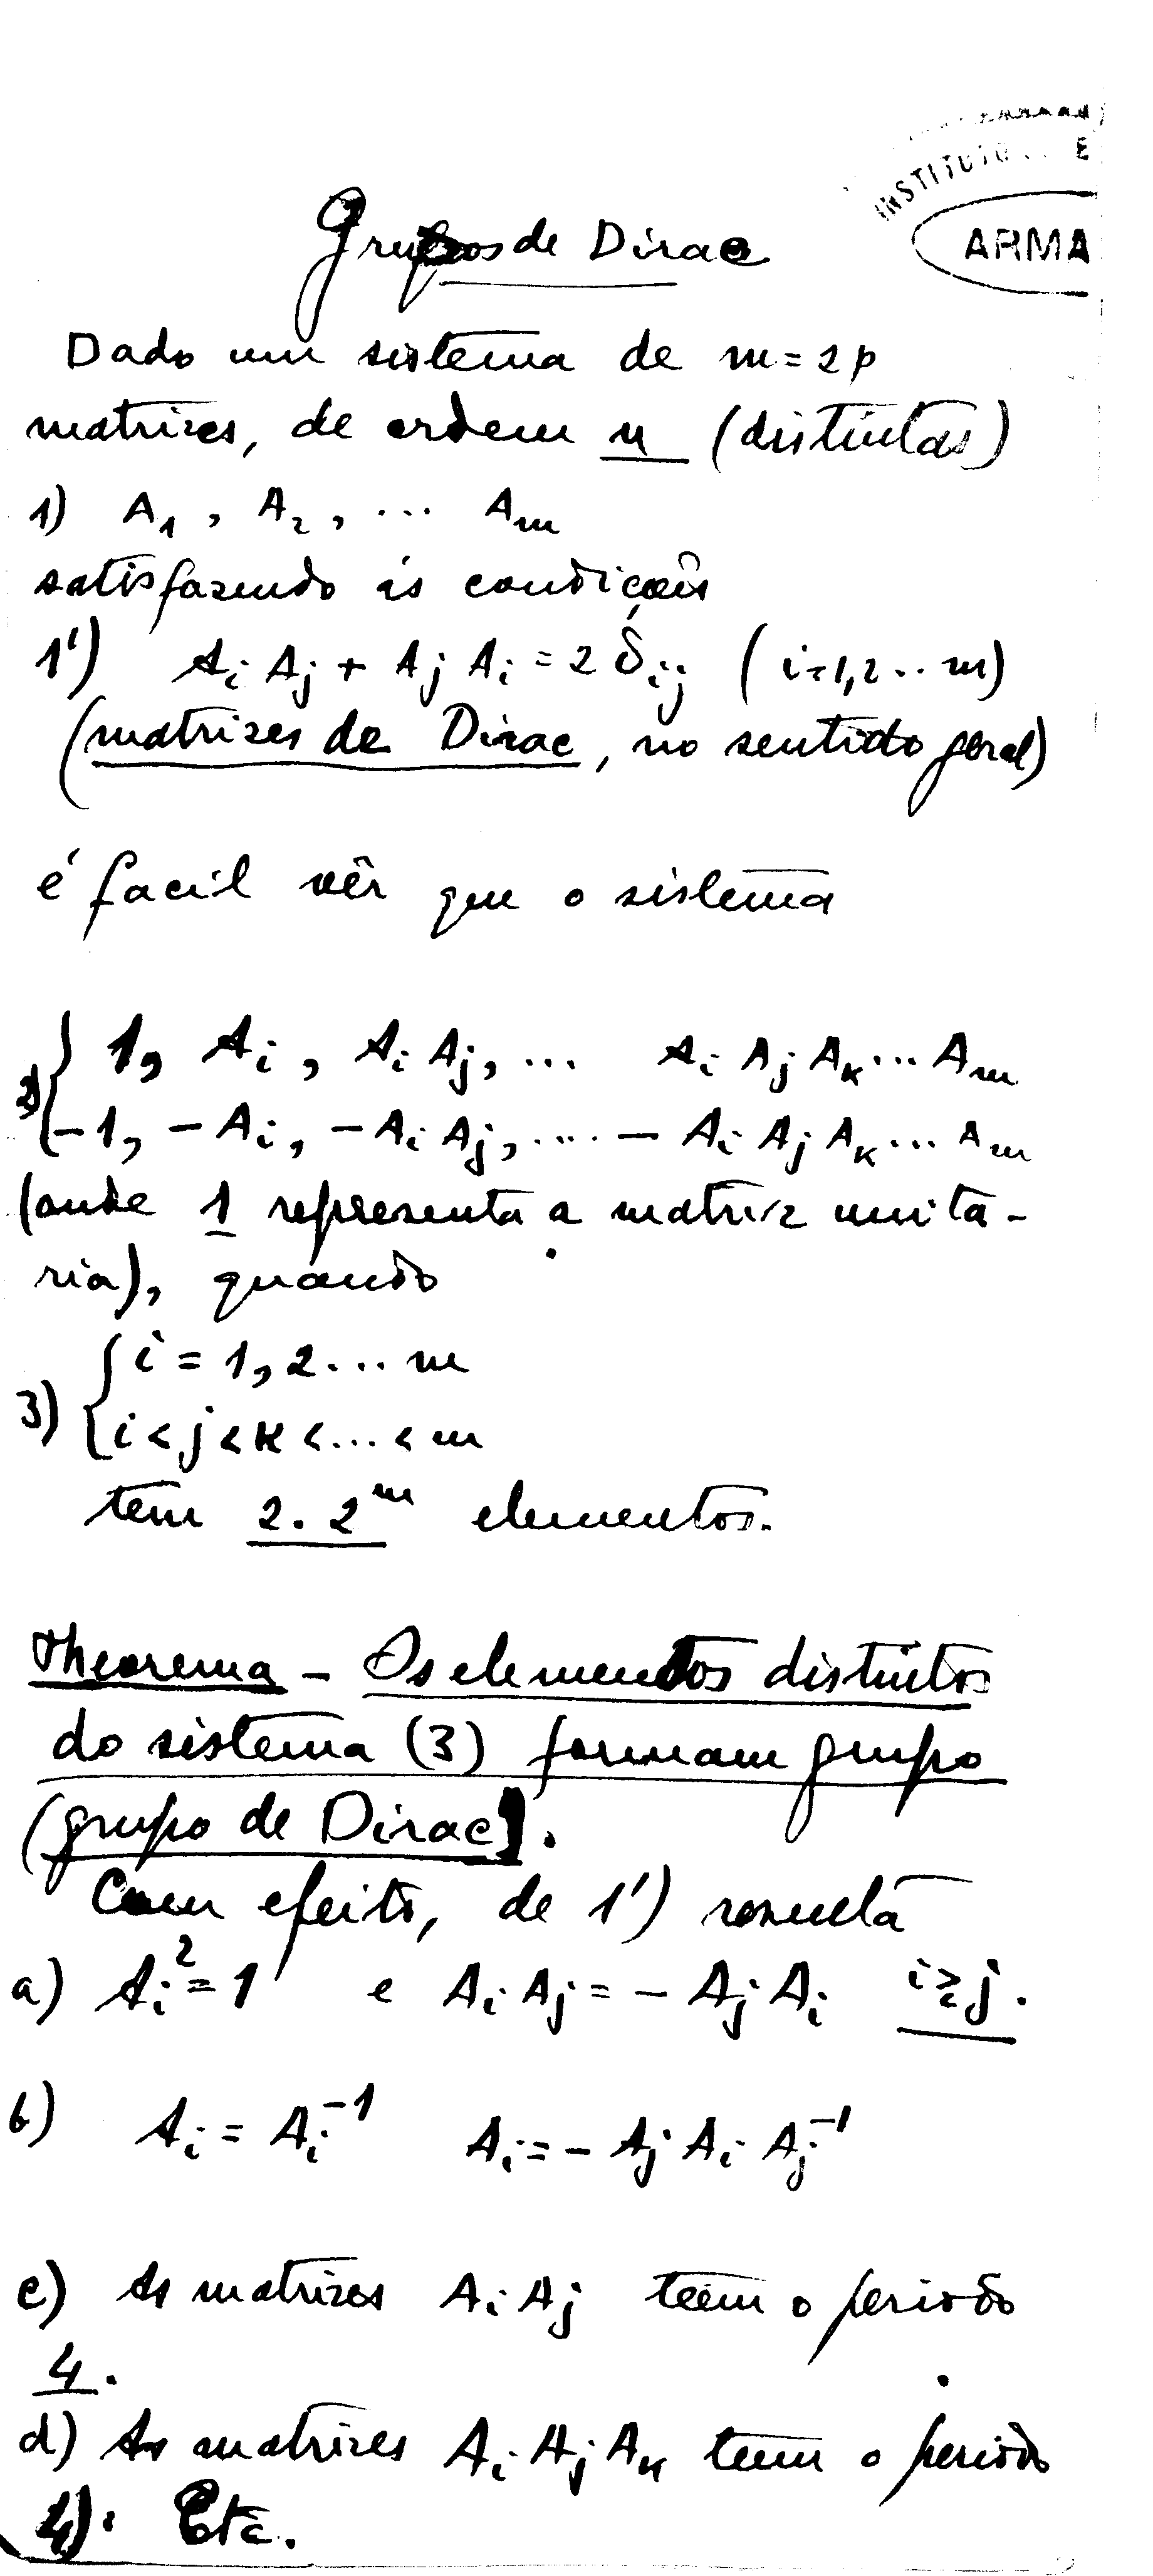 INSTITUTO
E
ARMA
Grupos de Dirac
Dado um sistema de m = 2p
matrizes, de ordem n (distintas)
1) A₁, A₂, ... Aₘ
satisfazendo ás condições
1') Aᵢ Aⱼ + Aⱼ Aᵢ = 2 δᵢⱼ (i=1,2...m)
(matrizes de Dirac, no sentido geral)
é facil vêr que o sistema
2) { 1, Aᵢ, Aᵢ Aⱼ, ... Aᵢ Aⱼ Aₖ ... Aₘ
-1, -Aᵢ, -Aᵢ Aⱼ, .... - Aᵢ Aⱼ Aₖ ... Aₘ
(onde 1 representa a matriz unita-
ria), quando
3) { i = 1, 2 ... m
i < j < k < ... < m
tem 2. 2ᵐ elementos.
Theorema - Os elementos distintos
do sistema (3) formam grupo
(grupo de Dirac).
Com efeito, de 1') resulta
a) Aᵢ² = 1 e Aᵢ Aⱼ = - Aⱼ Aᵢ i ≷ j.
b) Aᵢ = Aᵢ⁻¹ Aᵢ = - Aⱼ Aᵢ Aⱼ⁻¹
c) As matrizes Aᵢ Aⱼ teem o periodo
4.
d) As matrizes Aᵢ Aⱼ Aₖ teem o periodo
4). Etc.